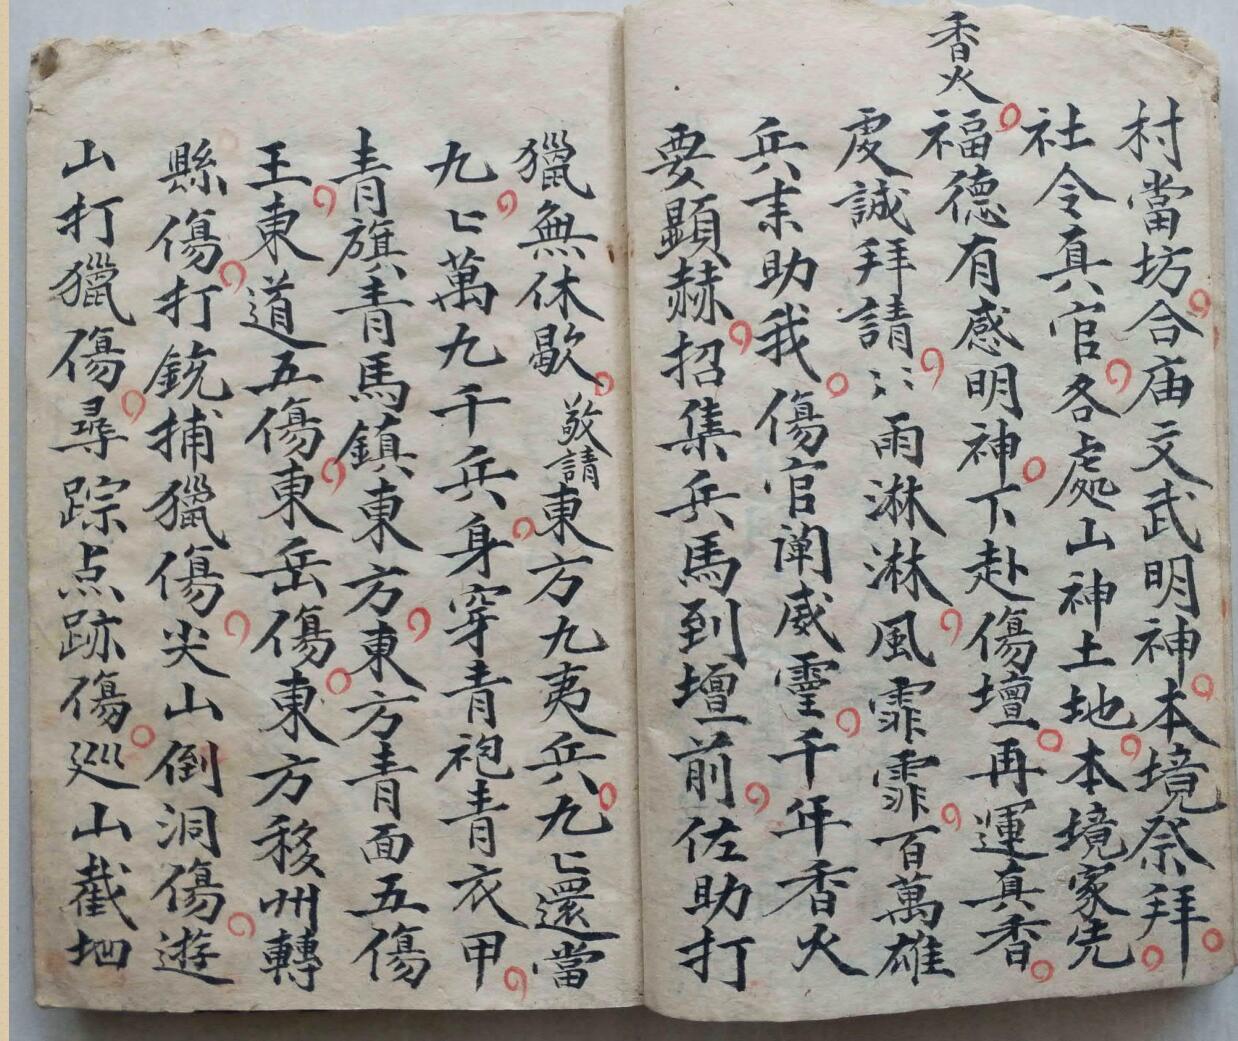 村當坊合庙文武明神本境祭拜
社令真官各處山神土地本境家先
香火
福德有感明神下赴傷壇再運真香
虔誠拜請〻雨淋淋風霏霏百萬雄
兵来助我傷官阐威霊千年香火
要顯赫招集兵馬到壇前佐助打
獵無休歇敬請東方九夷兵九〻還當
九〻萬九千兵身穿青袍青衣甲
青旗青馬鎮東方東方青面五傷
王東道五傷東岳傷東方移州轉
縣傷打銃捕獵傷尖山倒洞傷遊
山打獵傷尋踪点跡傷巡山截地